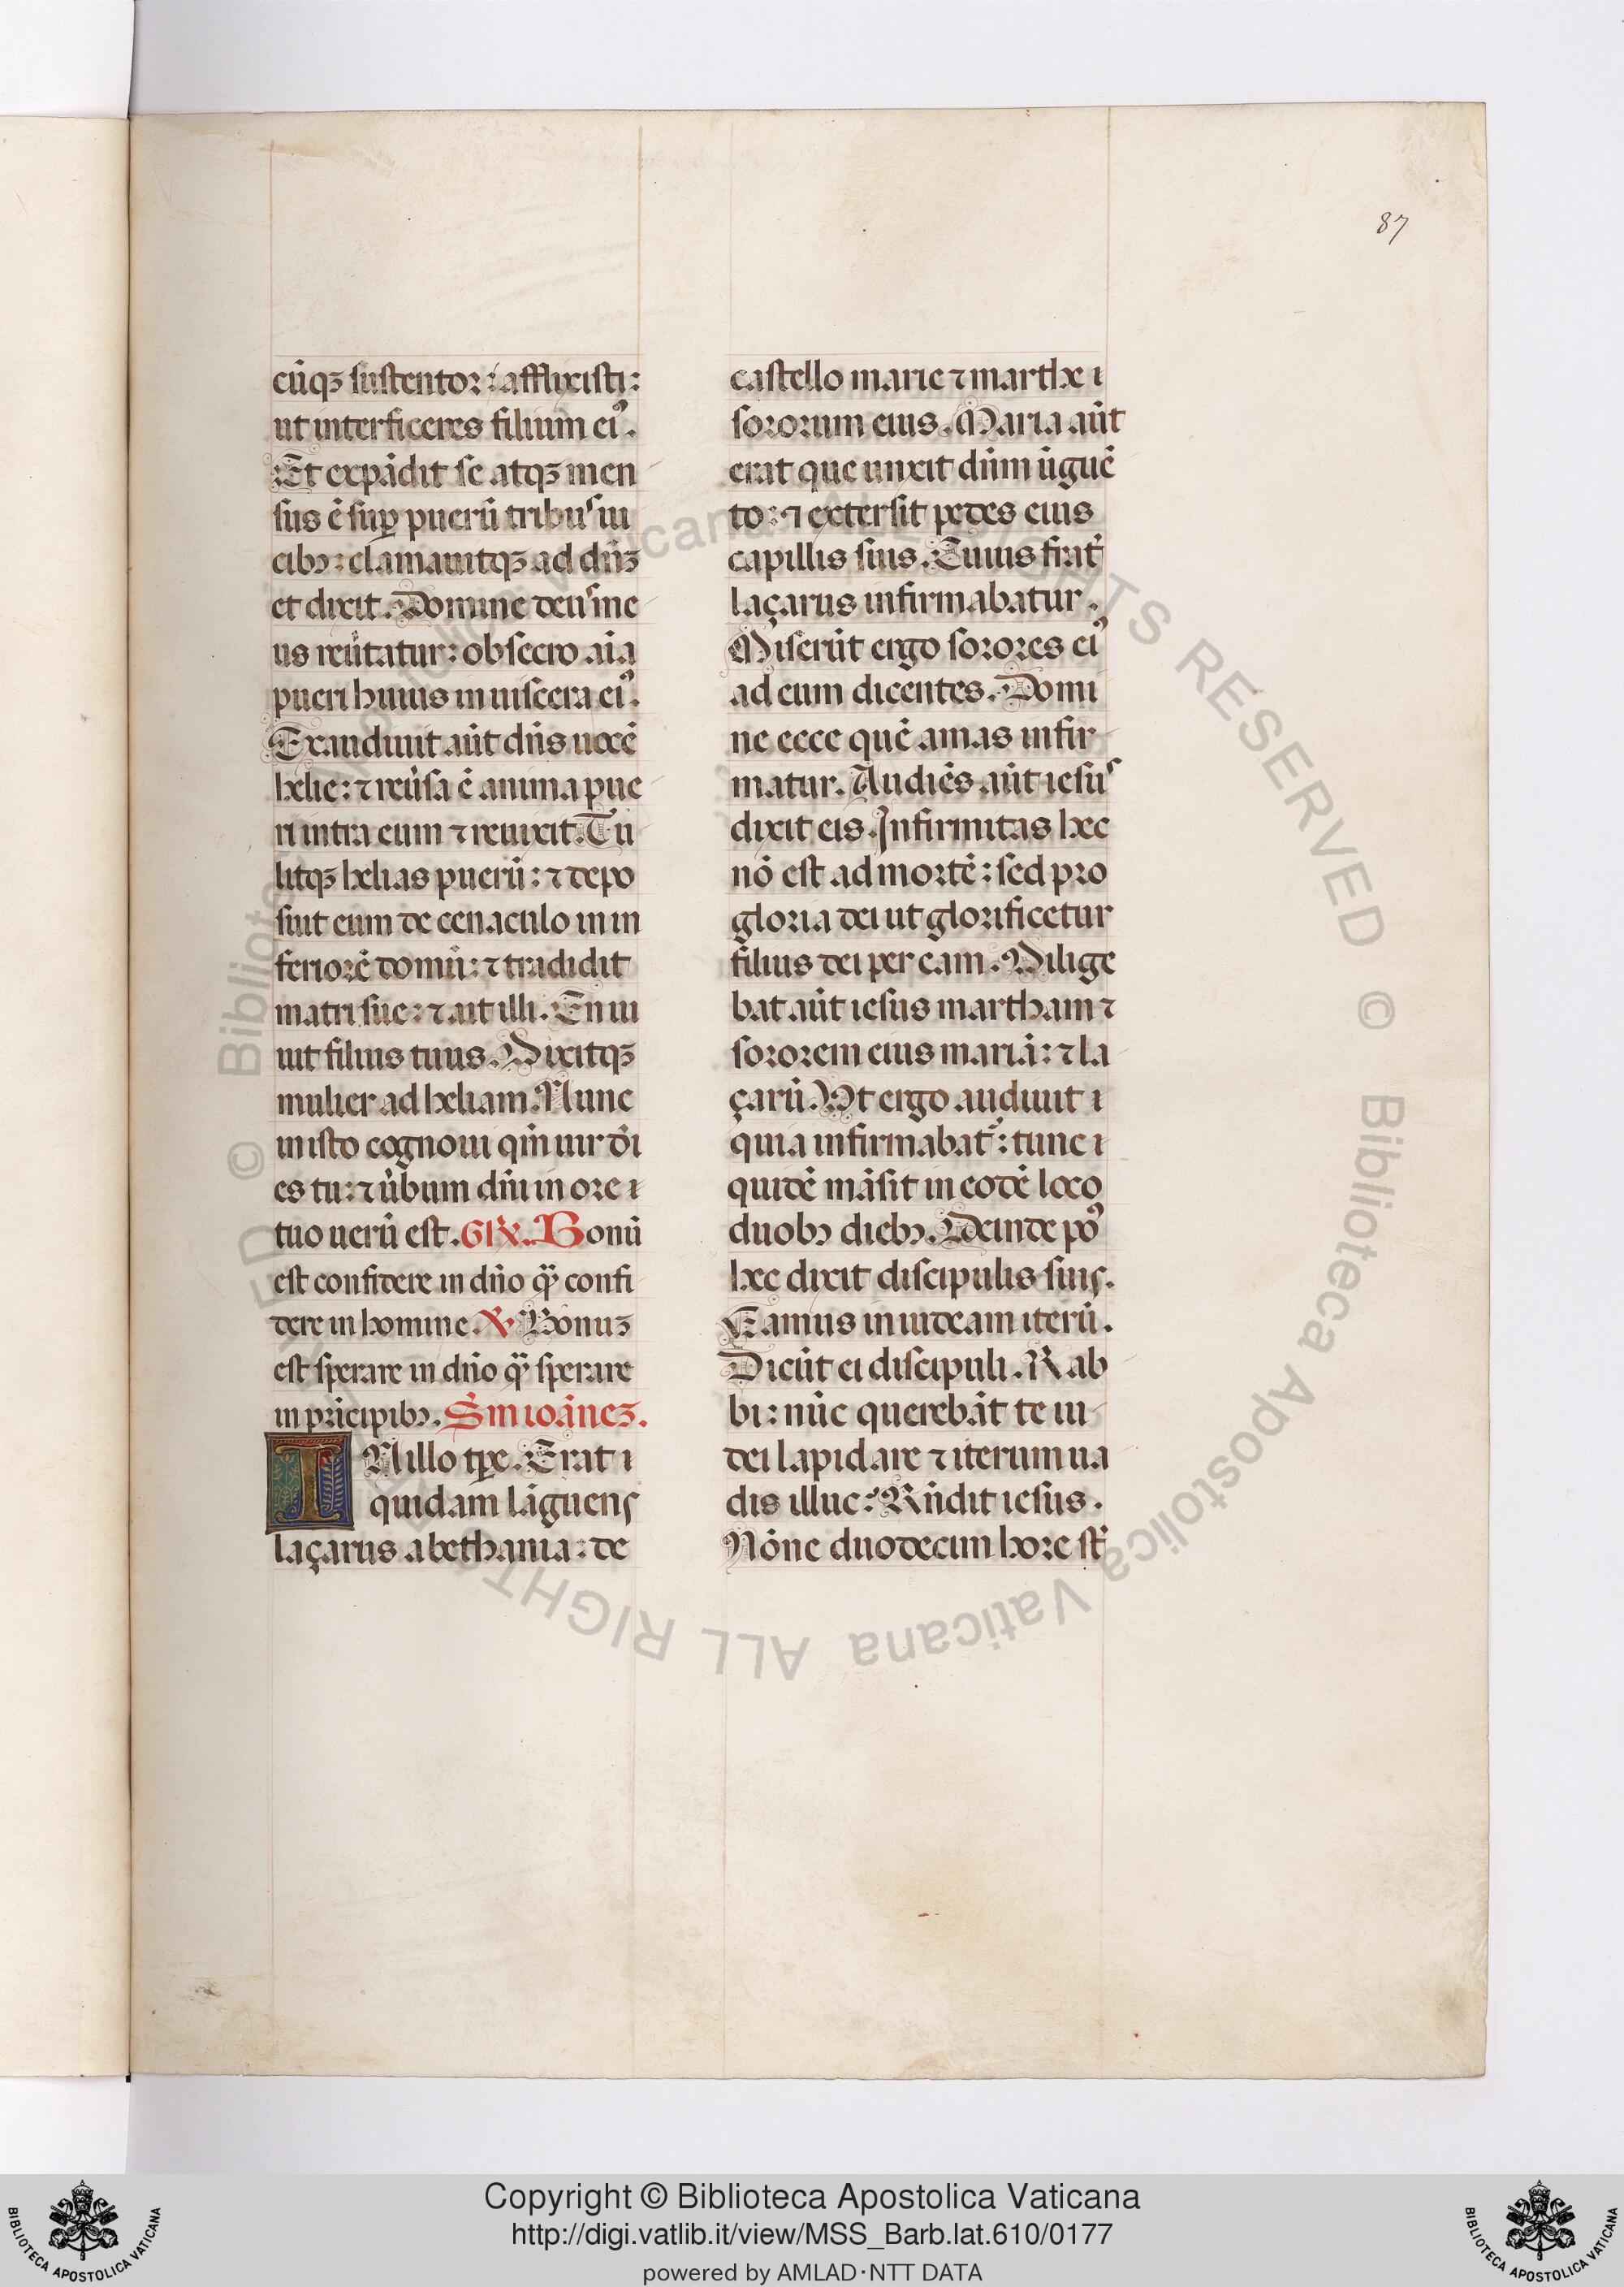 87
cũqꝫ sustentor: afflixisti:
ut interficeres filium eiꝰ.
Et expãdit se atqꝫ men
sus ẽ suꝑ puerũ tribus ui
cibꝫ: clamauitqꝫ ad dñꝫ
et dixit. Domine deus me
us reũtatur: obsecro aĩa
pueri huius in uiscera eiꝰ.
Exaudiuit aũt dñs uocẽ
helie: ⁊ reũsa ẽ anima pue
ri intra eum ⁊ reuixit. Tu
litqꝫ helias puerũ: ⁊ depo
suit eum de cenaculo in in
feriorẽ domũ: ⁊ tradidit
matri sue: ⁊ ait illi. En ui
uit filius tuus. Dixitqꝫ
mulier ad heliam. Nunc
in isto cognoui qm̃ uir di
es tu: ⁊ ũbum dñi in ore ı
tuo uerũ est. Gͬ. Bonũ
est confidere in dño q̃ confi
dere in homine. ℣. Bonuꝫ
est sperare in dño q̃ sperare
in prĩcipibꝫ. Sm ioãneꝫ.
IN illo tꝑe. Erat ı
quidam lãguens
laçarus a bethania: de
castello marie ⁊ marthe ı
sororum eius. Maria aũt
erat que unxit dñm ũguẽ
to: ⁊ extersit pedes eius
capillis suis. Cuius frat̃
laçarus infirmabatur.
Miserũt ergo sorores eiꝰ
ad eum dicentes. Domi
ne ecce quẽ amas infir
matur. Audiẽs aũt iesus
dixit eis. Infirmitas hec
nõ est ad mortẽ: sed pro
gloria dei ut glorificetur
filius dei per eam. Dilige
bat aũt iesus martham ⁊
sororem eius mariã: ⁊ la
çarũ. Ut ergo audiuit ı
quia infirmabat᷑: tunc ı
quidẽ mãsit in eodẽ loco
duobꝫ diebꝫ. Deinde poꝰ
hec dixit discipulis suis.
Eamus in iudeam iterũ.
Dicũt ei discipuli. Rab
bi: nũc querebãt te iu
dei lapidare ⁊ iterum ua
dis illuc? Rñdit iesus.
Nõne duodecim hore st̃
© Biblioteca Apostolica Vaticana ALL RIGHTS RESERVED © Biblioteca Apostolica Vaticana ALL RIGHTS RESERVED
Copyright © Biblioteca Apostolica Vaticana
http://digi.vatlib.it/view/MSS_Barb.lat.610/0177
powered by AMLAD·NTT DATA
BIBLIOTECA APOSTOLICA VATICANA
BIBLIOTECA APOSTOLICA VATICANA